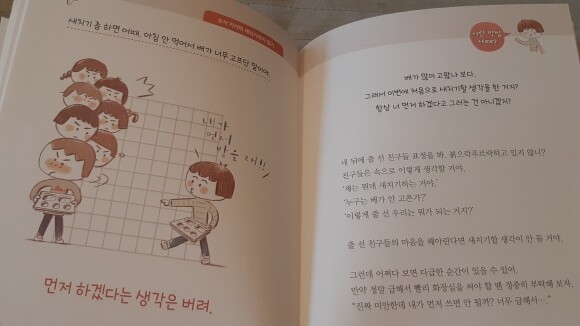 순서 지키며 새치기하지 않기
새치기 좀 하면 어때. 아침 안 먹어서 배가 너무 고프단 말이야.
내가
먼저
받을 거야!!
먼저 하겠다는 생각은 버려.
이런 방법
어때?
배가 많이 고팠나 보다.
그래서 이번에 처음으로 새치기할 생각을 한 거지?
항상 너 먼저 하겠다고 그러는 건 아니겠지?
네 뒤에 줄 선 친구들 표정을 봐. 붉으락푸르락하고 있지 않니?
친구들은 속으로 이렇게 생각할 거야.
'쟤는 뭔데 새치기하는 거야.'
'누구는 배가 안 고픈가?'
'이렇게 줄 선 우리는 뭐가 되는 거지?'
줄 선 친구들의 마음을 헤아린다면 새치기할 생각이 안 들 거야.
그런데 어쩌다 보면 다급한 순간이 있을 수 있어.
만약 정말 급해서 빨리 화장실을 써야 할 땐 정중히 부탁해 보자.
"진짜 미안한데 내가 먼저 쓰면 안 될까? 너무 급해서…."